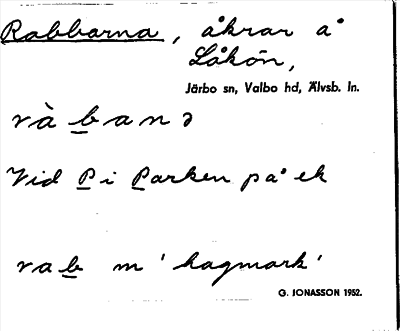 Rabbarna, åkrar å
Låkön,
Järbo sn, Valbo hd, Älvsb. ln.
ràbanə
Vid P i Parken på ek
rab m 'hagmark'
G. JONASSON 1952.